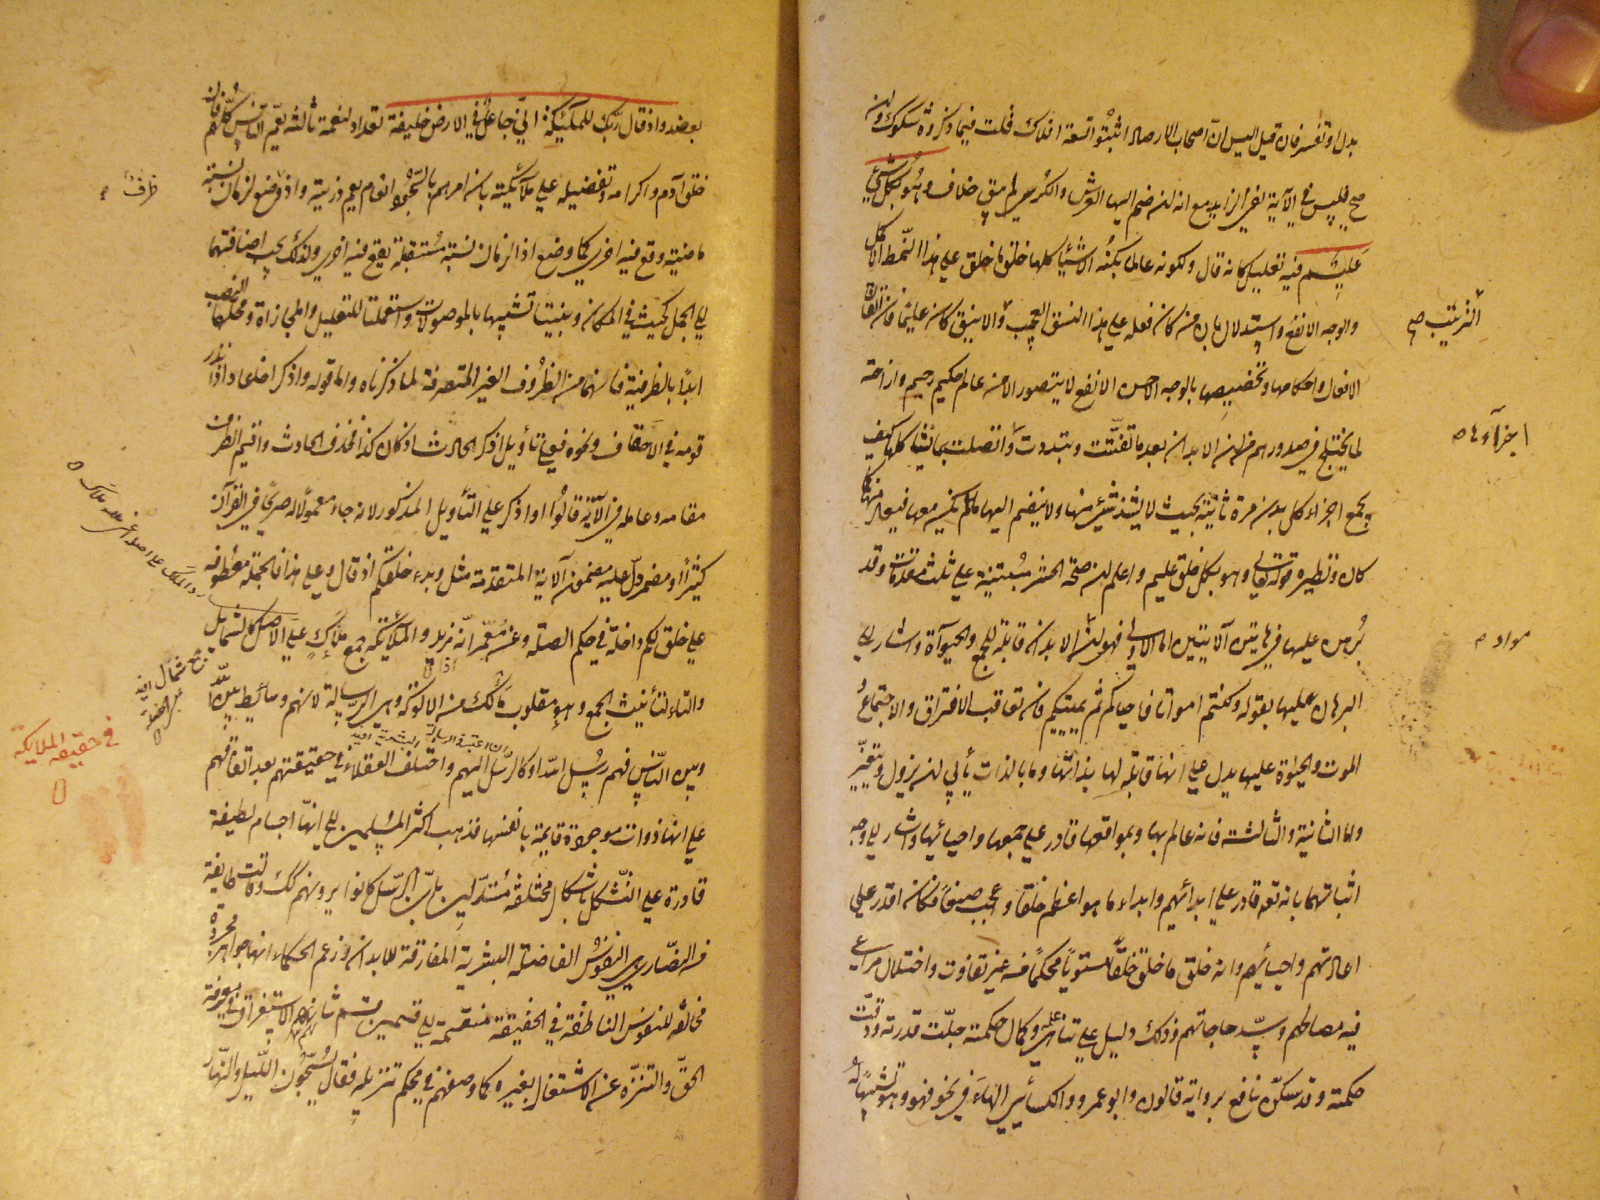 بدل او تفسر فان قيل اليس ان اصحاب الارصاد اثبتوا تسعة افلاك قلت فيما ذكروه شكوك وان
صح فليس في الآية نفي الزايد مع انه ان ضم اليها العرش والكرسي لم يبق خلاف وهو بكل شئ
عليم فيه تعليل كانه قال ولكونه عالما بكنه الاشيا كلها خلق ما خلق على هذا النمط الاكمل
والوجه الانفع واستدلال بان من كان فعله على هذا النسق العجيب والانيق كان عليما فان اتقان
الافعال واحكامها وتخصيصها بالوجه الاحسن الانفع لا يتصور الا من عالم حكيم رحيم وازاحة
لما يختلج في صدورهم من ان الابدان بعد ما تفتتت وتبددت واتصلت بما يشاكلها كيف
يجمع اجزاء كل بدن مرة ثانية بحيث لا يشذ شئ منها ولا ينضم اليها ما لم يكن معها فيعاد منها كما
كان ونظيره قوله تعالى وهو بكل خلق عليم واعلم ان صحة الحشر مبتنية على ثلث مقدمات وقد
برهن عليها في هاتين الآيتين اما الاولى فهو ان الابدان قابلة للجمع والحيوة واشار الى
البرهان عليها بقوله وكنتم امواتا فاحياكم ثم يميتكم فان تعاقب الافتراق والاجتماع
الموت والحيوة عليها يدل على انها قابلة لها بذاتها وما بالذات يأبى ان يزول ويتغير
واما الثانية والثالثة فانه عالم بها وبمواقعها قادر على جمعها واحيائها واشار الى وجه
اثباتهما بانه تعالى قادر على ابدائهم وابداء ما هو اعظم خلقا واعجب صنعا فكان اقدر على
اعادتهم واحيائهم وانه خلق ما خلق خلقا مستويا محكما من غير تفاوت واختلال مراعى
فيه مصالحهم وسد حاجاتهم وذلك دليل على تناهى علمه وكمال حكمته جلت قدرته ودقت
حكمته وقد سكن نافع برواية قالون وابو عمرو والكسائي الهاء في نحو فهو وهو تشبيها له
الترتيب صح
اجزآؤها
مواد
بعضد واذ قال ربك للملئكة اني جاعل في الارض خليفة تعداد لنعمة ثالثة تعم الناس كلهم فان
خلق آدم واكرامه وتفضيله على ملائكته بان امرهم بالسجود انعام يعم ذريته واذ ظرف وضع لزمان نسبة
ماضية وقع فيه اخرى كما وضع اذا لزمان نسبة مستقبلة يقع فيه اخرى ولذلك يجب اضافتهما
الى الجمل كحيث في المكان وبنيتا تشبيها بالموصولات واستعملتا للتعليل والمجازاة ومحلهما النصب
ابدا بالظرفية فانهما من الظروف الغير المتصرفة لما ذكرناه واما قوله واذكر اخا عاد اذ انذر
قومه في الاحقاف ونحوه فعلى تأويل اذكر الحادث اذ كان كذا فحذف الحادث واقيم الظرف
مقامه وعامله في الآية قالوا او اذكر على التأويل المذكور لانه جاء معمولا له صريحا في القرآن
كثيرا او مضمر دل عليه مضمون الآية المتقدمة مثل وبدء خلقكم اذ قال وعلى هذا فالجملة معطوفة
على خلق لكم داخلة في حكم الصلة وعن معمر انه مزيد والملائكة جمع ملأك على الاصل كالشمايل
والتاء لتأنيث الجمع وهو مقلوب مألك من الالوكة وهي الرسالة لانهم وسائط بين الله
وبين الناس فهم رسل الله او كالرسل اليهم واختلف العقلاء في حقيقتهم بعد اتفاقهم
على انها ذوات موجودة قايمة بانفسها فذهب اكثر المسلمين الى انها اجسام لطيفة
قادرة على التشكل باشكال مختلفة مستدلين بان الرسل كانوا يرونهم كذلك وقالت طايفة
من النصارى هي النفوس الفاضلة البشرية المفارقة للابدان وزعم الحكماء انها جواهر مجردة
مخالفة للنفوس الناطقة في الحقيقة منقسمة الى قسمين قسم شانهم الاستغراق في معرفة
الحق والتنزه عن الاشتغال بغيره كما وصفهم في محكم تنزيله فقال يسبحون الليل والنهار
ظرف
جمع شمال
في حقيقة الملايكة